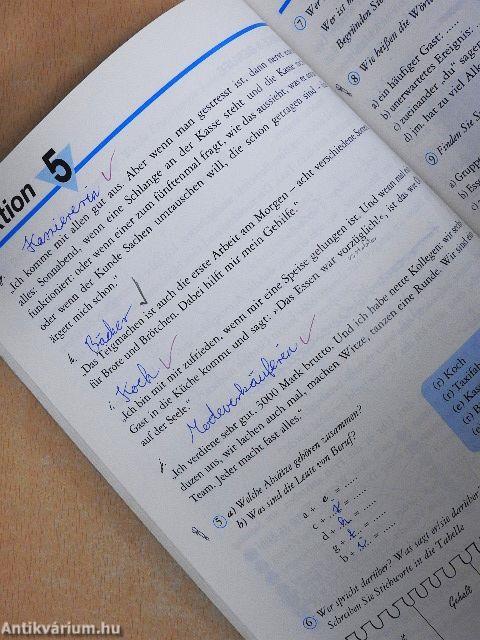 tion 5
Kassiererin
„Ich komme mit allen gut aus. Aber wenn man gestresst ist, dann nervt
alles: Sonnabend, wenn eine Schlange an der Kasse steht und die Kasse
funktioniert; oder wenn einer zum fünftenmal fragt, wie das aussieht, was er
oder wenn der Kunde Sachen umtauschen will, die schon getragen sind -
ärgert mich schon."
h. Bäcker
Das Teigmachen ist auch die erste Arbeit am Morgen – acht verschiedene
für Brote und Brötchen. Dabei hilft mir mein Gehilfe."
i. Koch
„Ich bin mit mir zufrieden, wenn mir eine Speise gelungen ist. Und wenn mal
Gast in die Küche kommt und sagt: »Das Essen war vorzüglich!«, ist das
auf der Seele."
j. Modeverkäuferin
„Ich verdiene sehr gut. 3000 Mark brutto. Und ich habe nette Kollegen: wir
duzen uns, wir lachen auch mal, machen Witze, tanzen eine Runde. Wir sind
Team. Jeder macht fast alles."
5 a) Welche Absätze gehören zusammen?
b) Was sind die Leute von Beruf?
a + e = .....
c + = .....
d + h = .....
g + = .....
b + = .....
6 Wer spricht darüber? Was sagt er/sie darüber
Schreiben Sie Stichworte in die Tabelle
Gehalt
7 Wer
Wer ist
Begründen Sie
8 Wie heißen die Wört
a) ein häufiger Gast: .....
b) unerwartetes Ereignis:
c) zueinander „du" sagen
d) jm. hat zu viel
9 Finden Sie
a) Gruppe
b) Ess
c)
d)
(r) Koch
(r) Taxifah
(e) Kass
(r) B
(e)
Antikvárium.hu